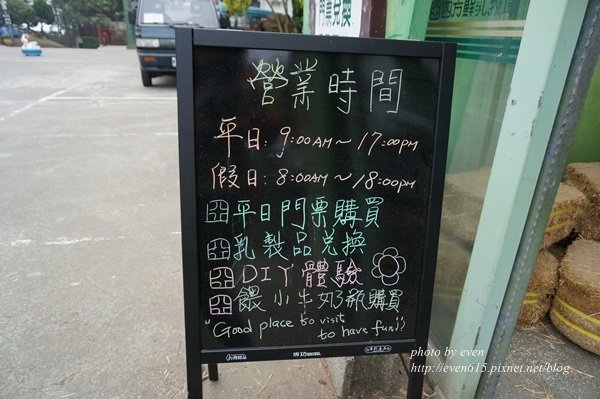 票券兌換
四方鮮乳牧場
營業時間
平日: 9:00AM～17:00PM
假日: 8:00AM～18:00PM
平日門票購買
乳製品兌換
DIY體驗
餵小牛奶瓶購買
"Good place to visit
to have fun!"
photo by even
http://even615.pixnet.net/blog